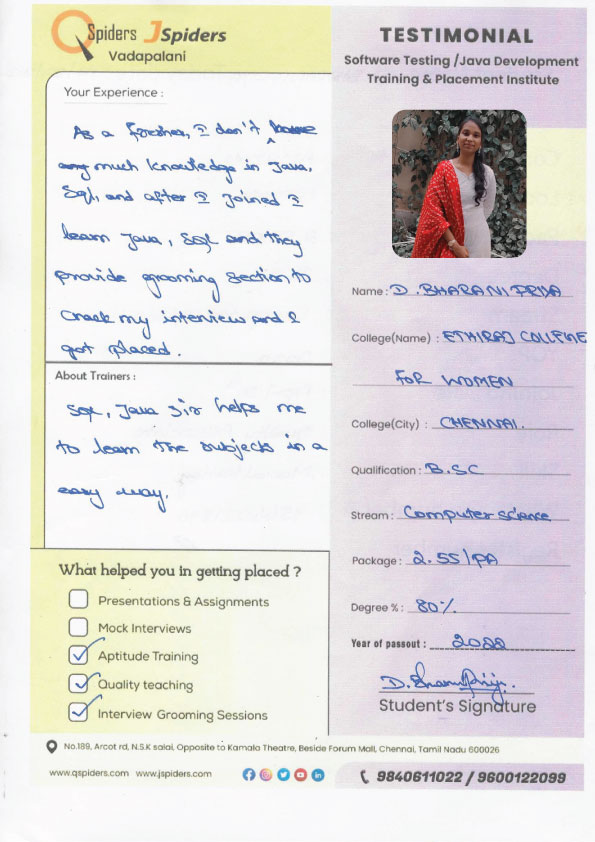 QSpiders JSpiders
Vadapalani
Your Experience :
As a fresher, I don't have
any much knowledge in Java,
Sql, and after I joined I
learn Java, SQL and they
provide grooming section to
crack my interview and I
got placed.
About Trainers :
Sql, Java sir helps me
to learn the subjects in a
easy way.
What helped you in getting placed ?
Presentations & Assignments
Mock Interviews
Aptitude Training
Quality teaching
Interview Grooming Sessions
TESTIMONIAL
Software Testing /Java Development
Training & Placement Institute
Name : D. BHARANI PRIYA
College(Name) : ETHIRAJ COLLEGE
FOR WOMEN
College(City) : CHENNAI.
Qualification : B.SC
Stream : Computer science
Package : 2.55 lPA
Degree % : 80%
Year of passout : 2022
Student's Signature
No.189, Arcot rd, N.S.K salai, Opposite to Kamala Theatre, Beside Forum Mall, Chennai, Tamil Nadu 600026
www.qspiders.com www.jspiders.com
9840611022 / 9600122099